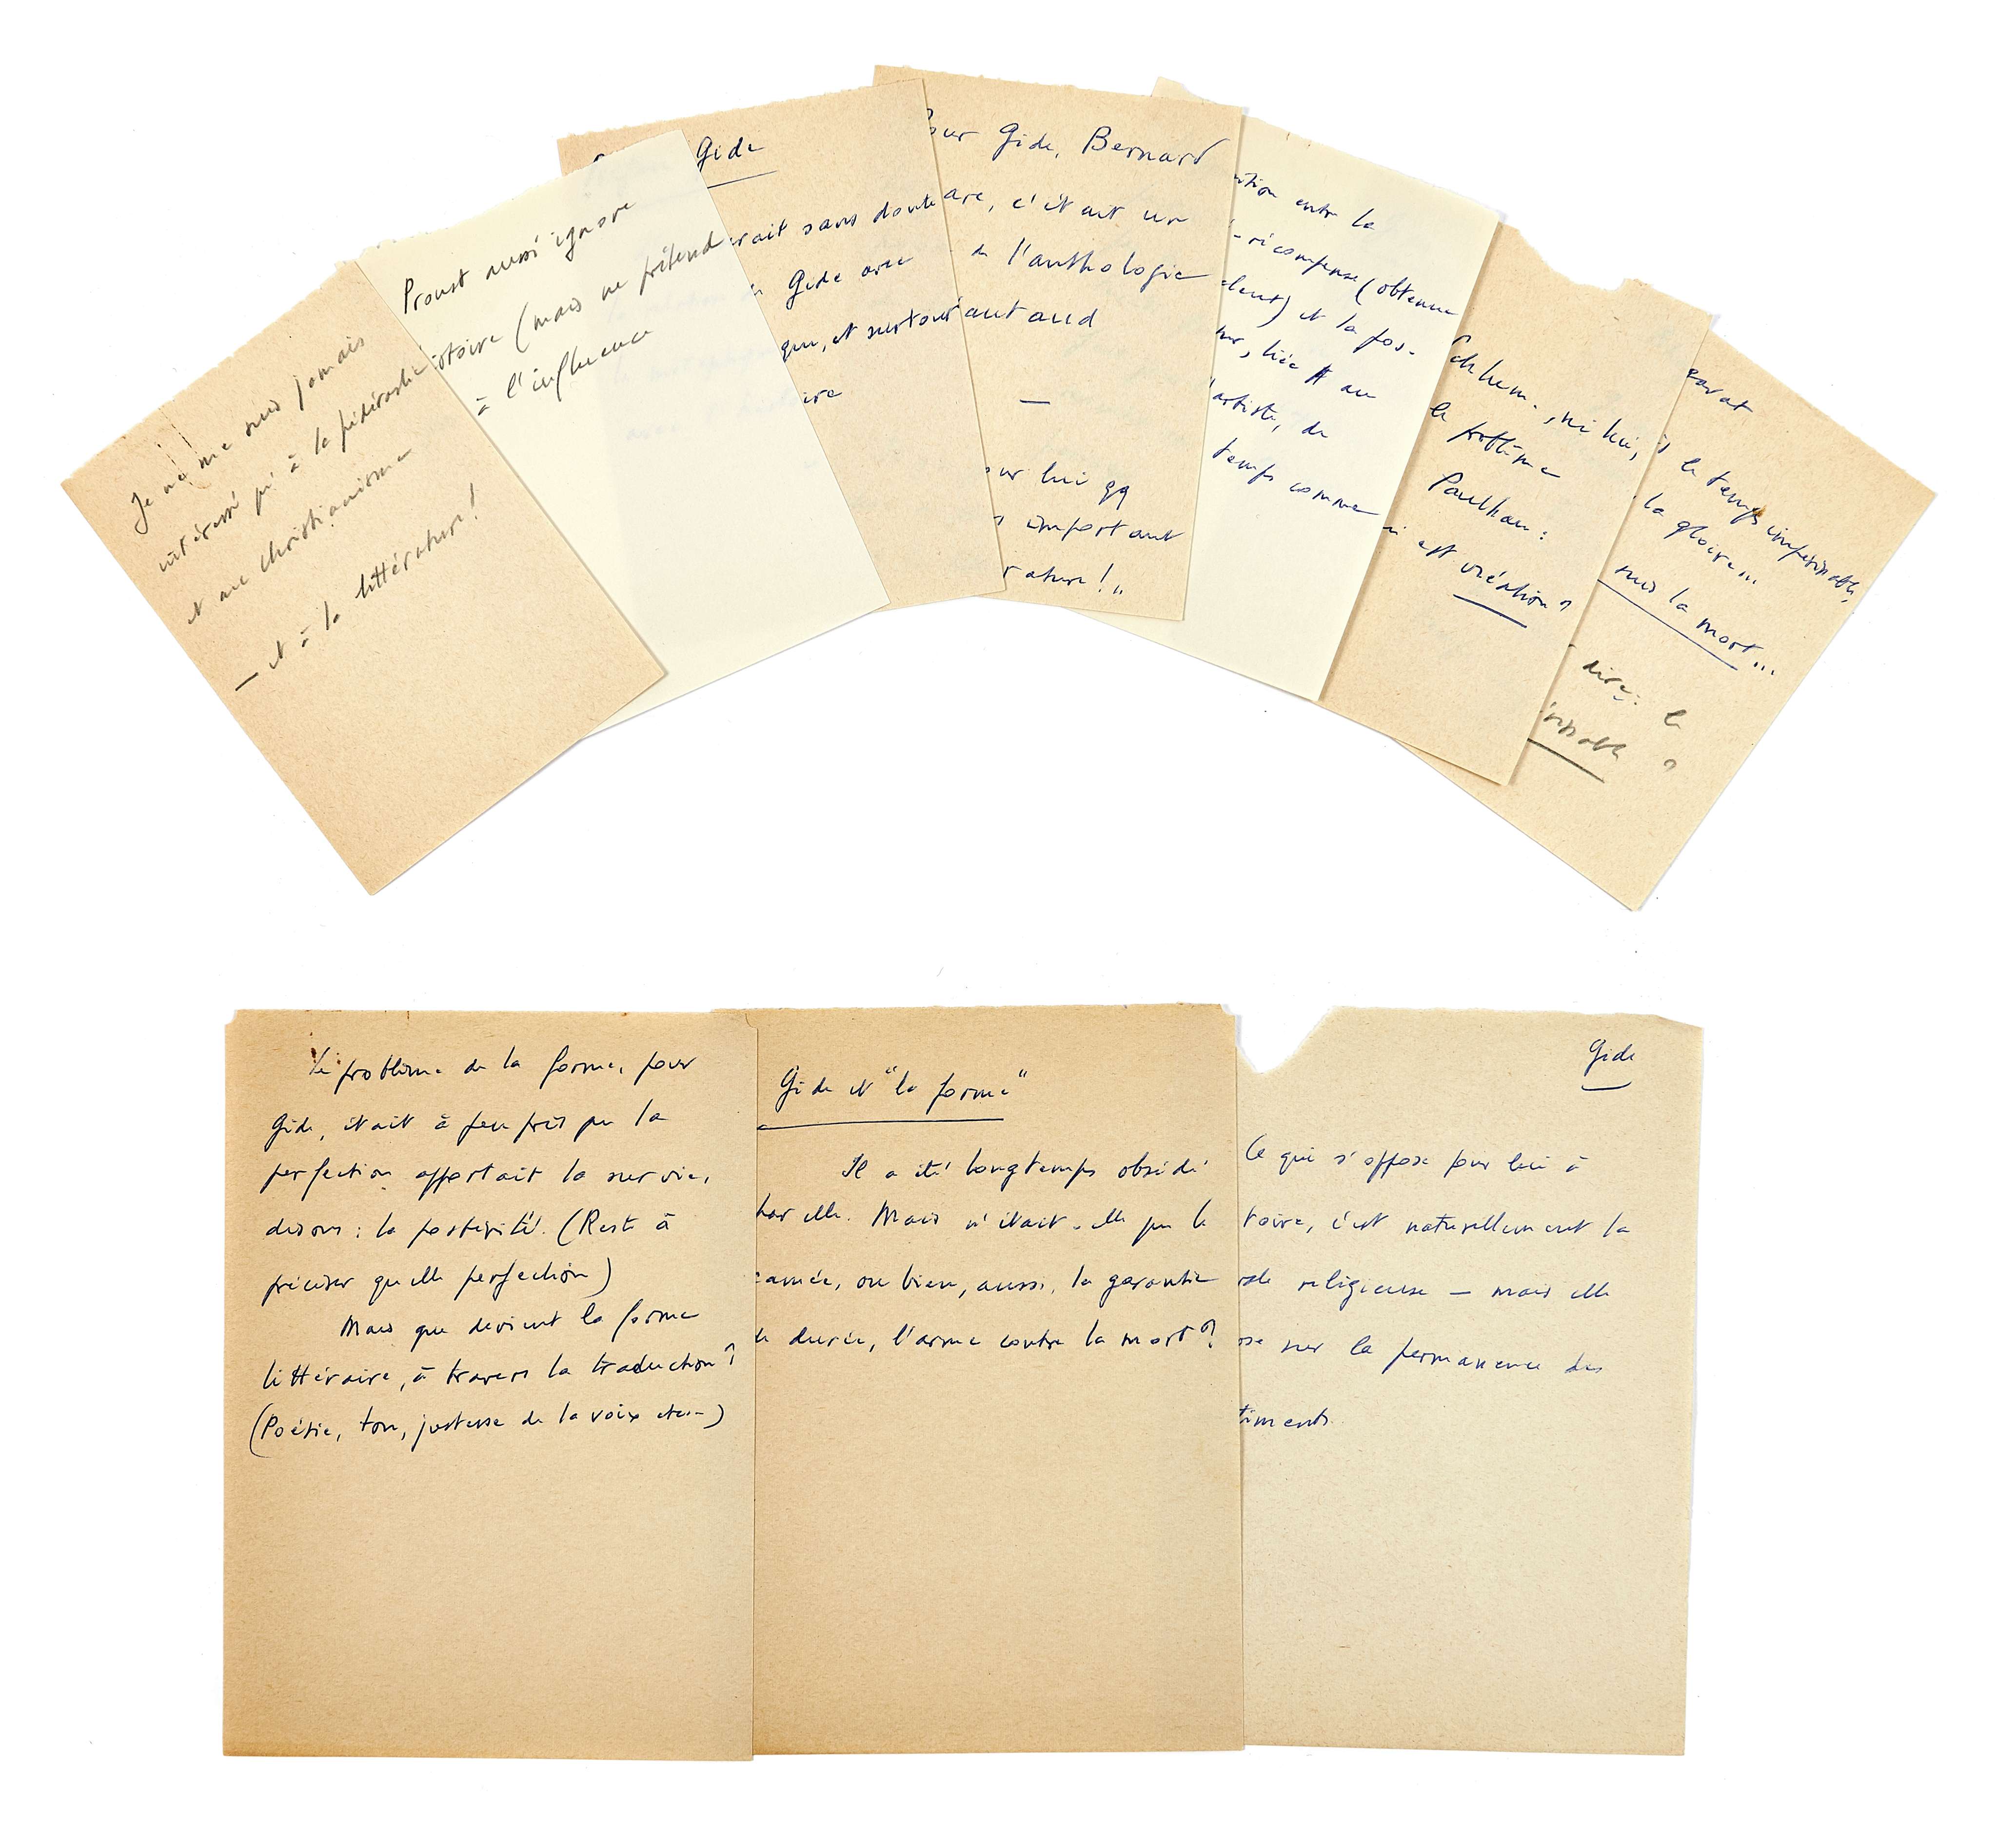 Je ne me suis jamais
intéressé qu'à la pédérastie
et au christianisme
— et à la littérature!
Proust aussi ignore
stoire (mais ne prétend
à l'influence
Gide
rait sans doute
Gide avec
que, et surtout
ire
our Gide, Bernard
are, c'était un
de l'anthologie
autand
—
ur lui qq
important
rature!"
ition entre la
-récompense (obtenue
et la pos-
liée au
artiste, de
temps comme
, ni lui,
le problème
Paulhan:
est création?
le temps impérissable,
la gloire...
suis la mort...
dire: le
rissable ?
Le problème de la forme, pour
Gide, était à peu près que la
perfection apportait la survie,
disons: la postérité. (Reste à
préciser quelle perfection)
Mais que devient la forme
littéraire, à travers la traduction?
(Poésie, ton, justesse de la voix etc—)
Gide et "la forme"
Il a été longtemps obsédé
par elle. Mais n'était-elle que le
camée, ou bien, aussi, la garantie
de durée, l'arme contre la mort?
Gide
Ce qui s'oppose pour lui à
toire, c'est naturellement la
religieuse — mais elle
ose sur la permanence des
timents.